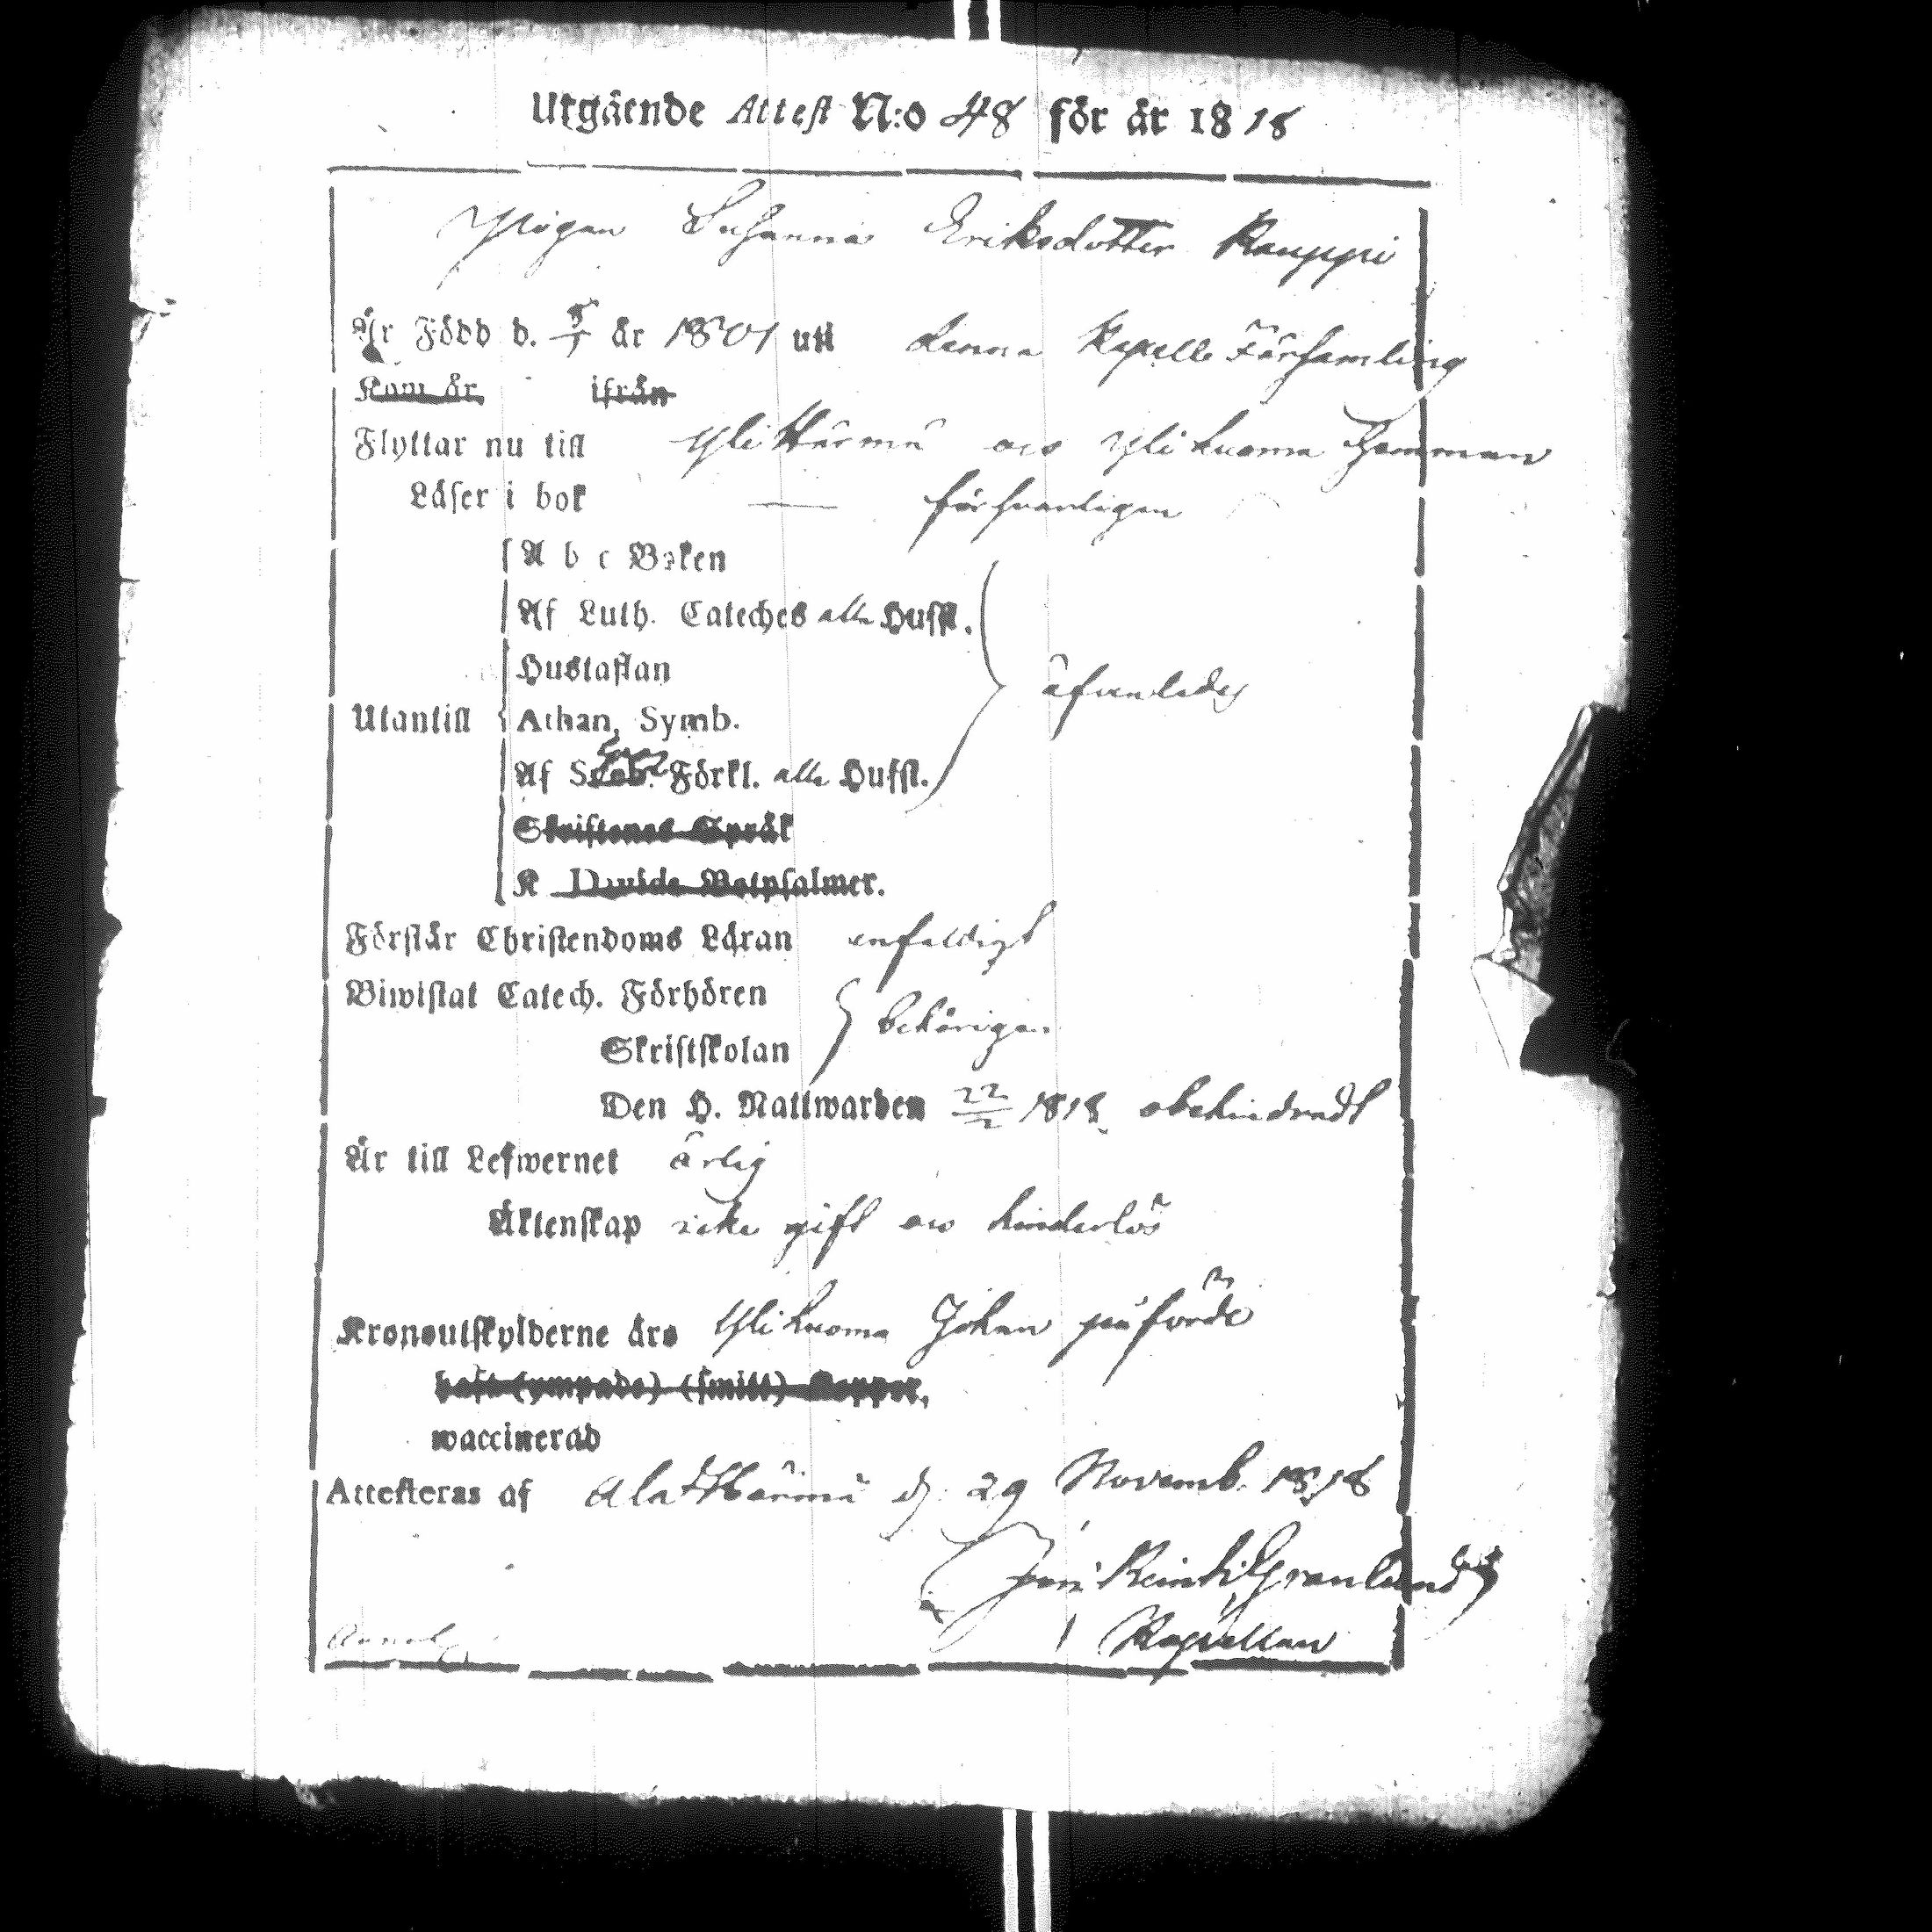 Utgående Attest N:o 48 för år 1818
Pigan Susanna Eriksdotter Kauppi
Är Född d. 5/1 år 1801 uti denna Kapells Församling
Kom år ifrån
Flyttar nu till Ylihärmä och Ylikuoma Hemman
Läser i bok — försvarligen
A b c Boken
Af Luth. Cateches alla Hufst.
Hustaflan
äfvenledes
Utantill Athan. Symb.
Af Förkl. alla Hufst.
Skriftenes Språk
K Davids Botpsalmer.
Förstår Christendoms Läran enfaldigt
Biwistat Catech. Förhören
behörigen
Skriftskolan
Den H. Nattwarden 22/2 1818 obehindradt
Är till Lefwernet ärlig
Äktenskap icke gift och hinderlös
Kronoutskylderne äro Ylikuoma Johan påförde
haft (ympade) (smitt) Koppor,
waccinerad
Attesteras af Alahärmä d. 29 Novemb. 1818
Granlund
Kapellan